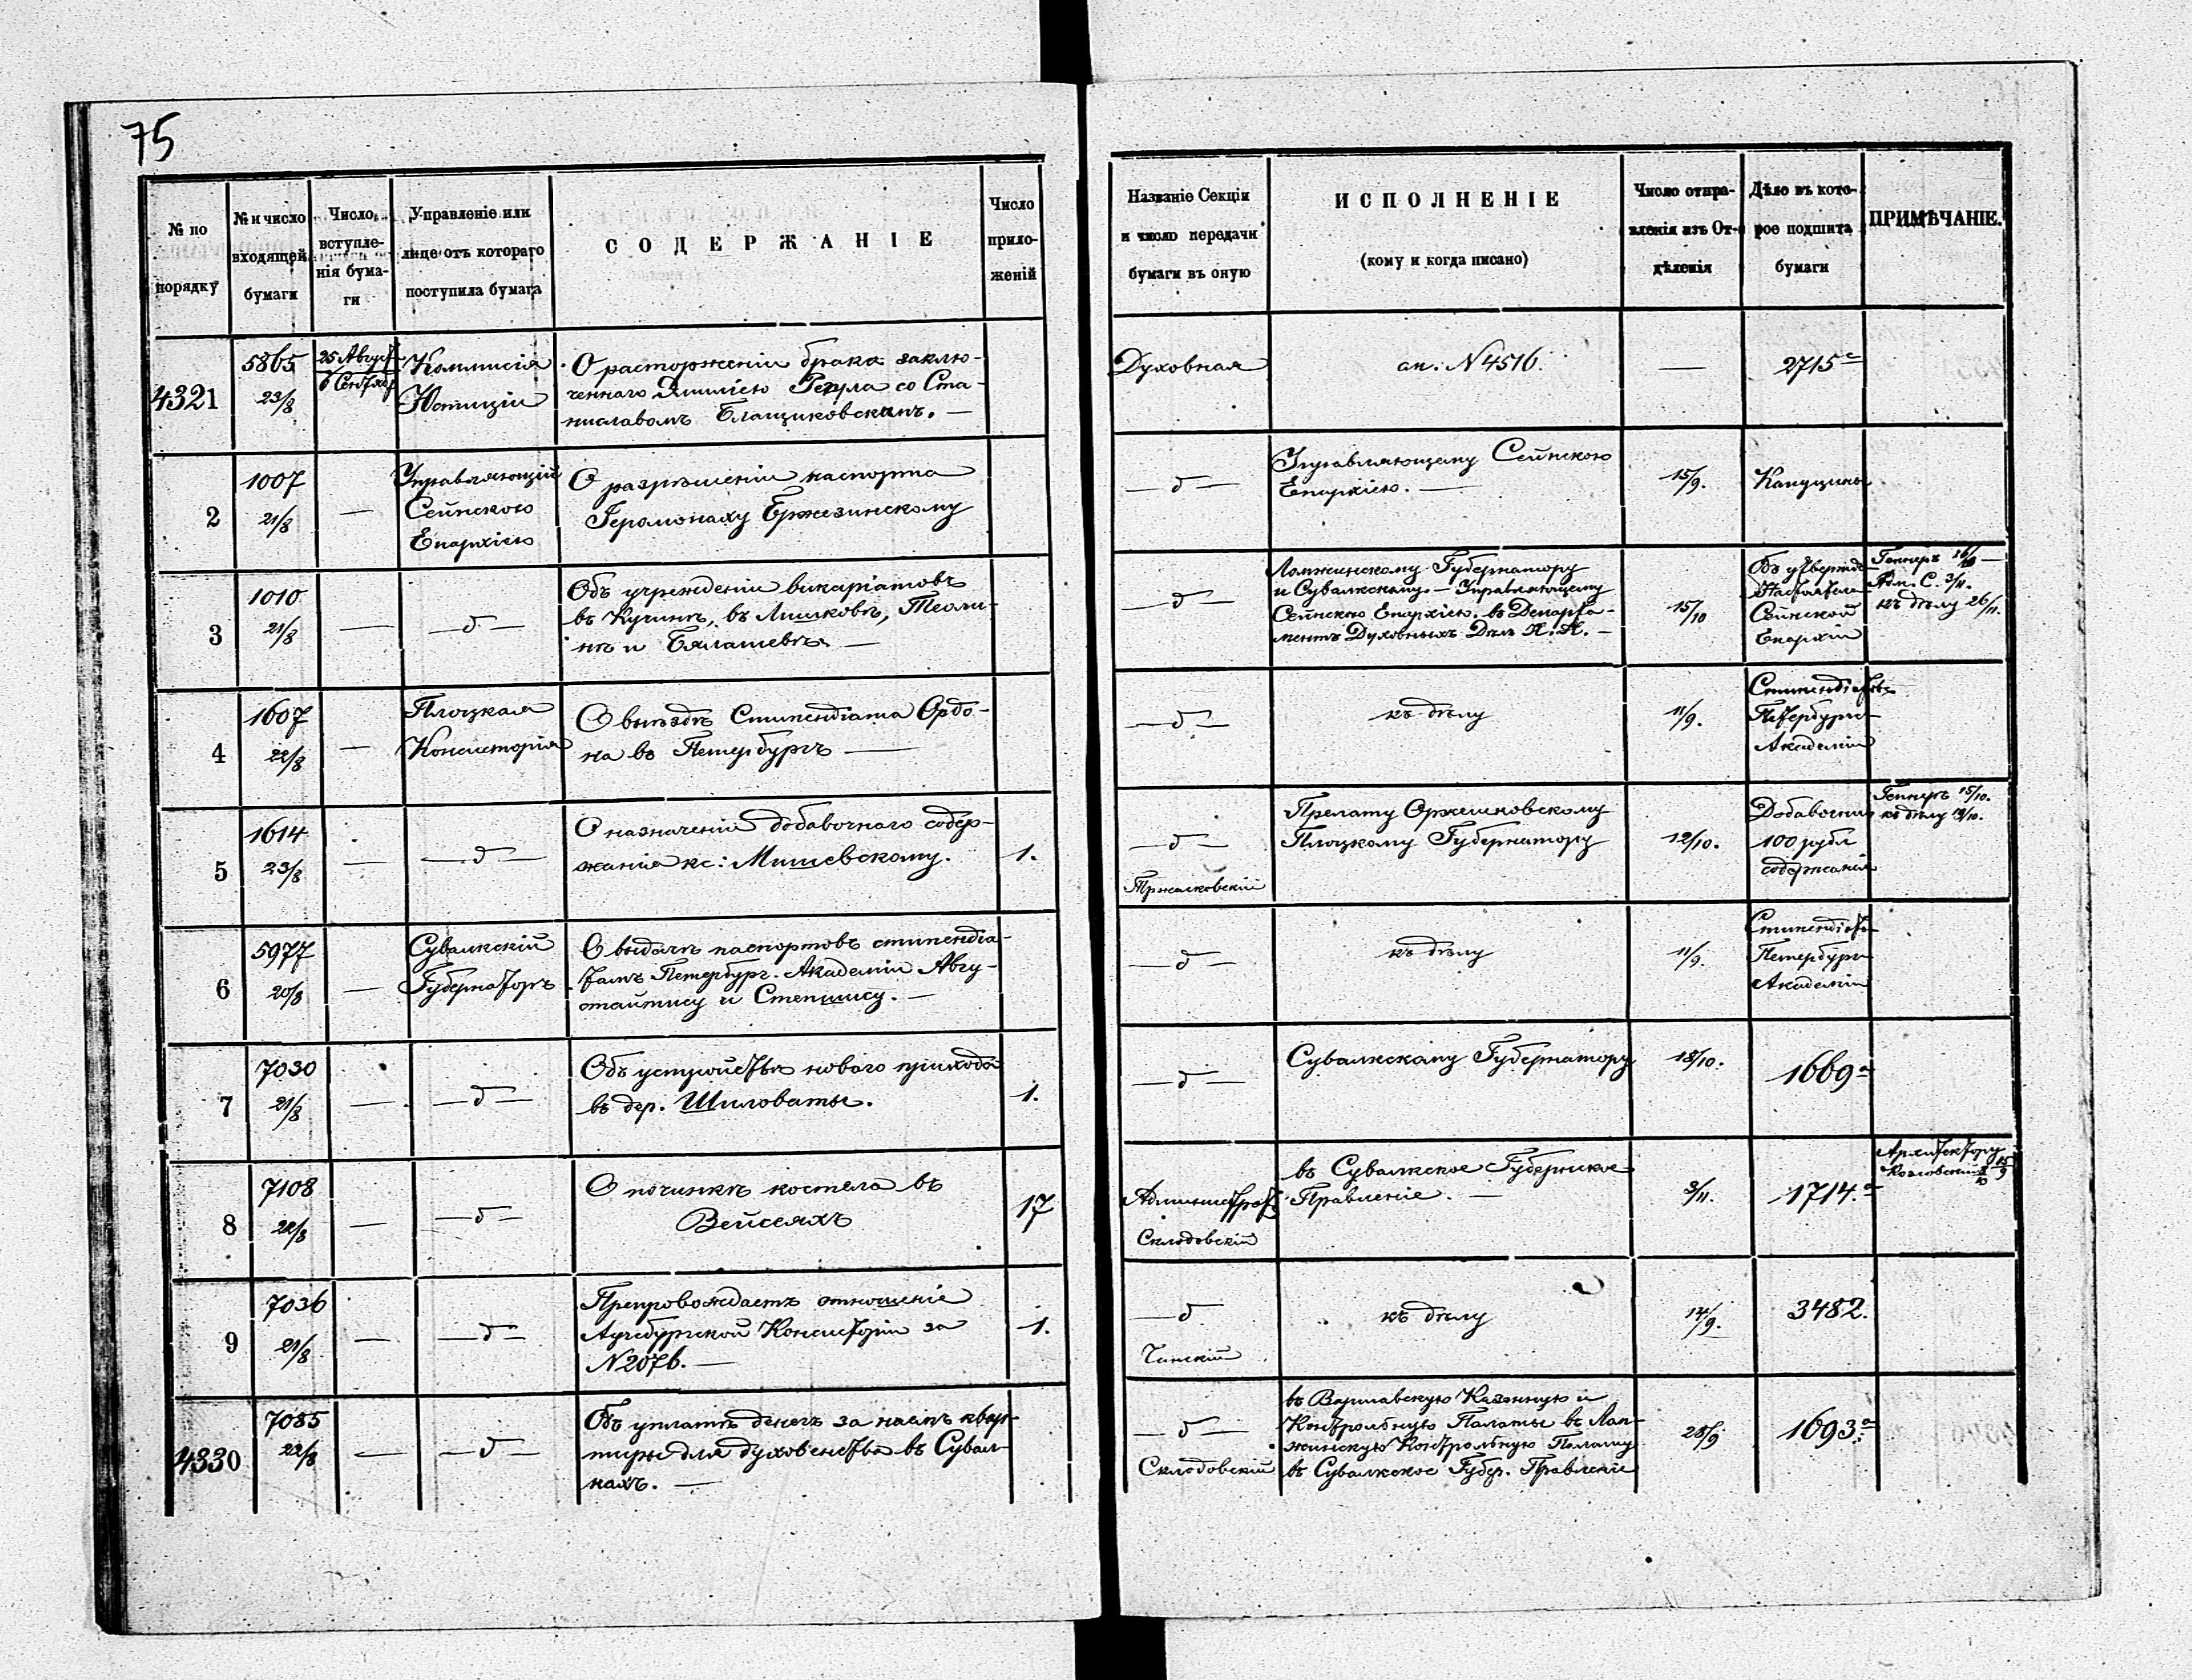 75
№ по порядку
№ и число входящей бумаги
Число вступле-нія бума-ги
Управленіе или лице отъ котораго поступила бумага
СОДЕРЖАНІЕ
Число прило-женій
Названіе Секціи и число передачи бумаги въ оную
ИСПОЛНЕНІЕ
(кому и когда писано)
Число отпра-вленія изъ От-дѣленія
Дѣло въ кото-рое подшита бумаги
ПРИМѢЧАНІЕ.
4321
5865
23/8
25 Август
6 Сентяб
Коммисія
Юстиціи
О расторженіи брака заклю-
ченнаго Эмиліею со Ста-
ниславомъ Блащиковскимъ. —
Духовная
ак: N 4516.
—
2715 с
2
1007
21/8
—
Управляющій
Сейнскою
Епархіею
О разрѣшеніи паспорта
Іеромонаху Бржезинскому
— д —
Управляющему Сейнскою
Епархіею. —
15/9.
Капуцины
3
1010
21/8
—
— д —
Объ учрежденіи викаріатовъ
въ Кучинѣ, въ Лишковѣ, Теоли-
нѣ и Бялашевѣ. —
— д —
Ломжинскому Губернатору
и Сувалкскому. — Управляющему
Сейнскою Епархіею. въ Департа-
ментъ Духовныхъ Дѣлъ И. И. —
15/10
Объ утвержд
Настоятеле
Сейнской
Епархіи
Гепнеръ 16/10 —
Адм. С. 3/11.
къ дѣлу 26/11.
4
1607
22/8
—
Плоцкая
Консисторія
О выѣздѣ Стипендіата Ордо-
на въ Петербургъ —
— д —
къ дѣлу
11/9.
Стипендіатъ
Петербург
Академіи
5
1614
23/8
—
— д —
О назначеніи добавочнаго содер-
жанія кс: Мишевскому.
1.
— д —
Тржасковскій
Прелату Оржешковскому
Плоцкому Губернатору
12/10.
Добавочны
100 рубл
содержанія
Гепнеръ 15/10.
къ дѣлу 19/10.
6
5977
20/8
—
Сувалкскій
Губернаторъ
О выдачѣ паспортовъ стипендіа-
тамъ Петербург. Академіи Авгу-
стайтису и Степшису. —
— д —
къ дѣлу
11/9.
Стипендіат
Петербург
Академіи
7
7030
21/8
—
— д —
Объ устройствѣ новаго прихода
въ дер. Шиловаты.
1.
— д —
Сувалкскому Губернатору
18/10.
1669 а
8
7108
22/8
—
— д —
О починкѣ костела въ
Вейсеяхъ
17
Административ
Склодовскій
въ Сувалкское Губернское
Правленіе. —
3/11.
1714. а
Архитектору
Козловскій
9
7036
21/8
—
— д —
Препровождаетъ отношеніе
Аугсбургской Консисторіи за
N 2076. —
1.
— д
Чинскій
къ дѣлу
14/9.
3482.
4330
7085
22/8
—
— д —
Объ уплатѣ денегъ за наемъ квар-
тиры для духовенства въ Сувал-
кахъ. —
— д —
Склодовскій
въ Варшавскую Казенную и
Контрольную Палаты въ Лом-
жинскую Контрольную Палату
въ Сувалкское Губер. Правленіе
28/9
1693 а